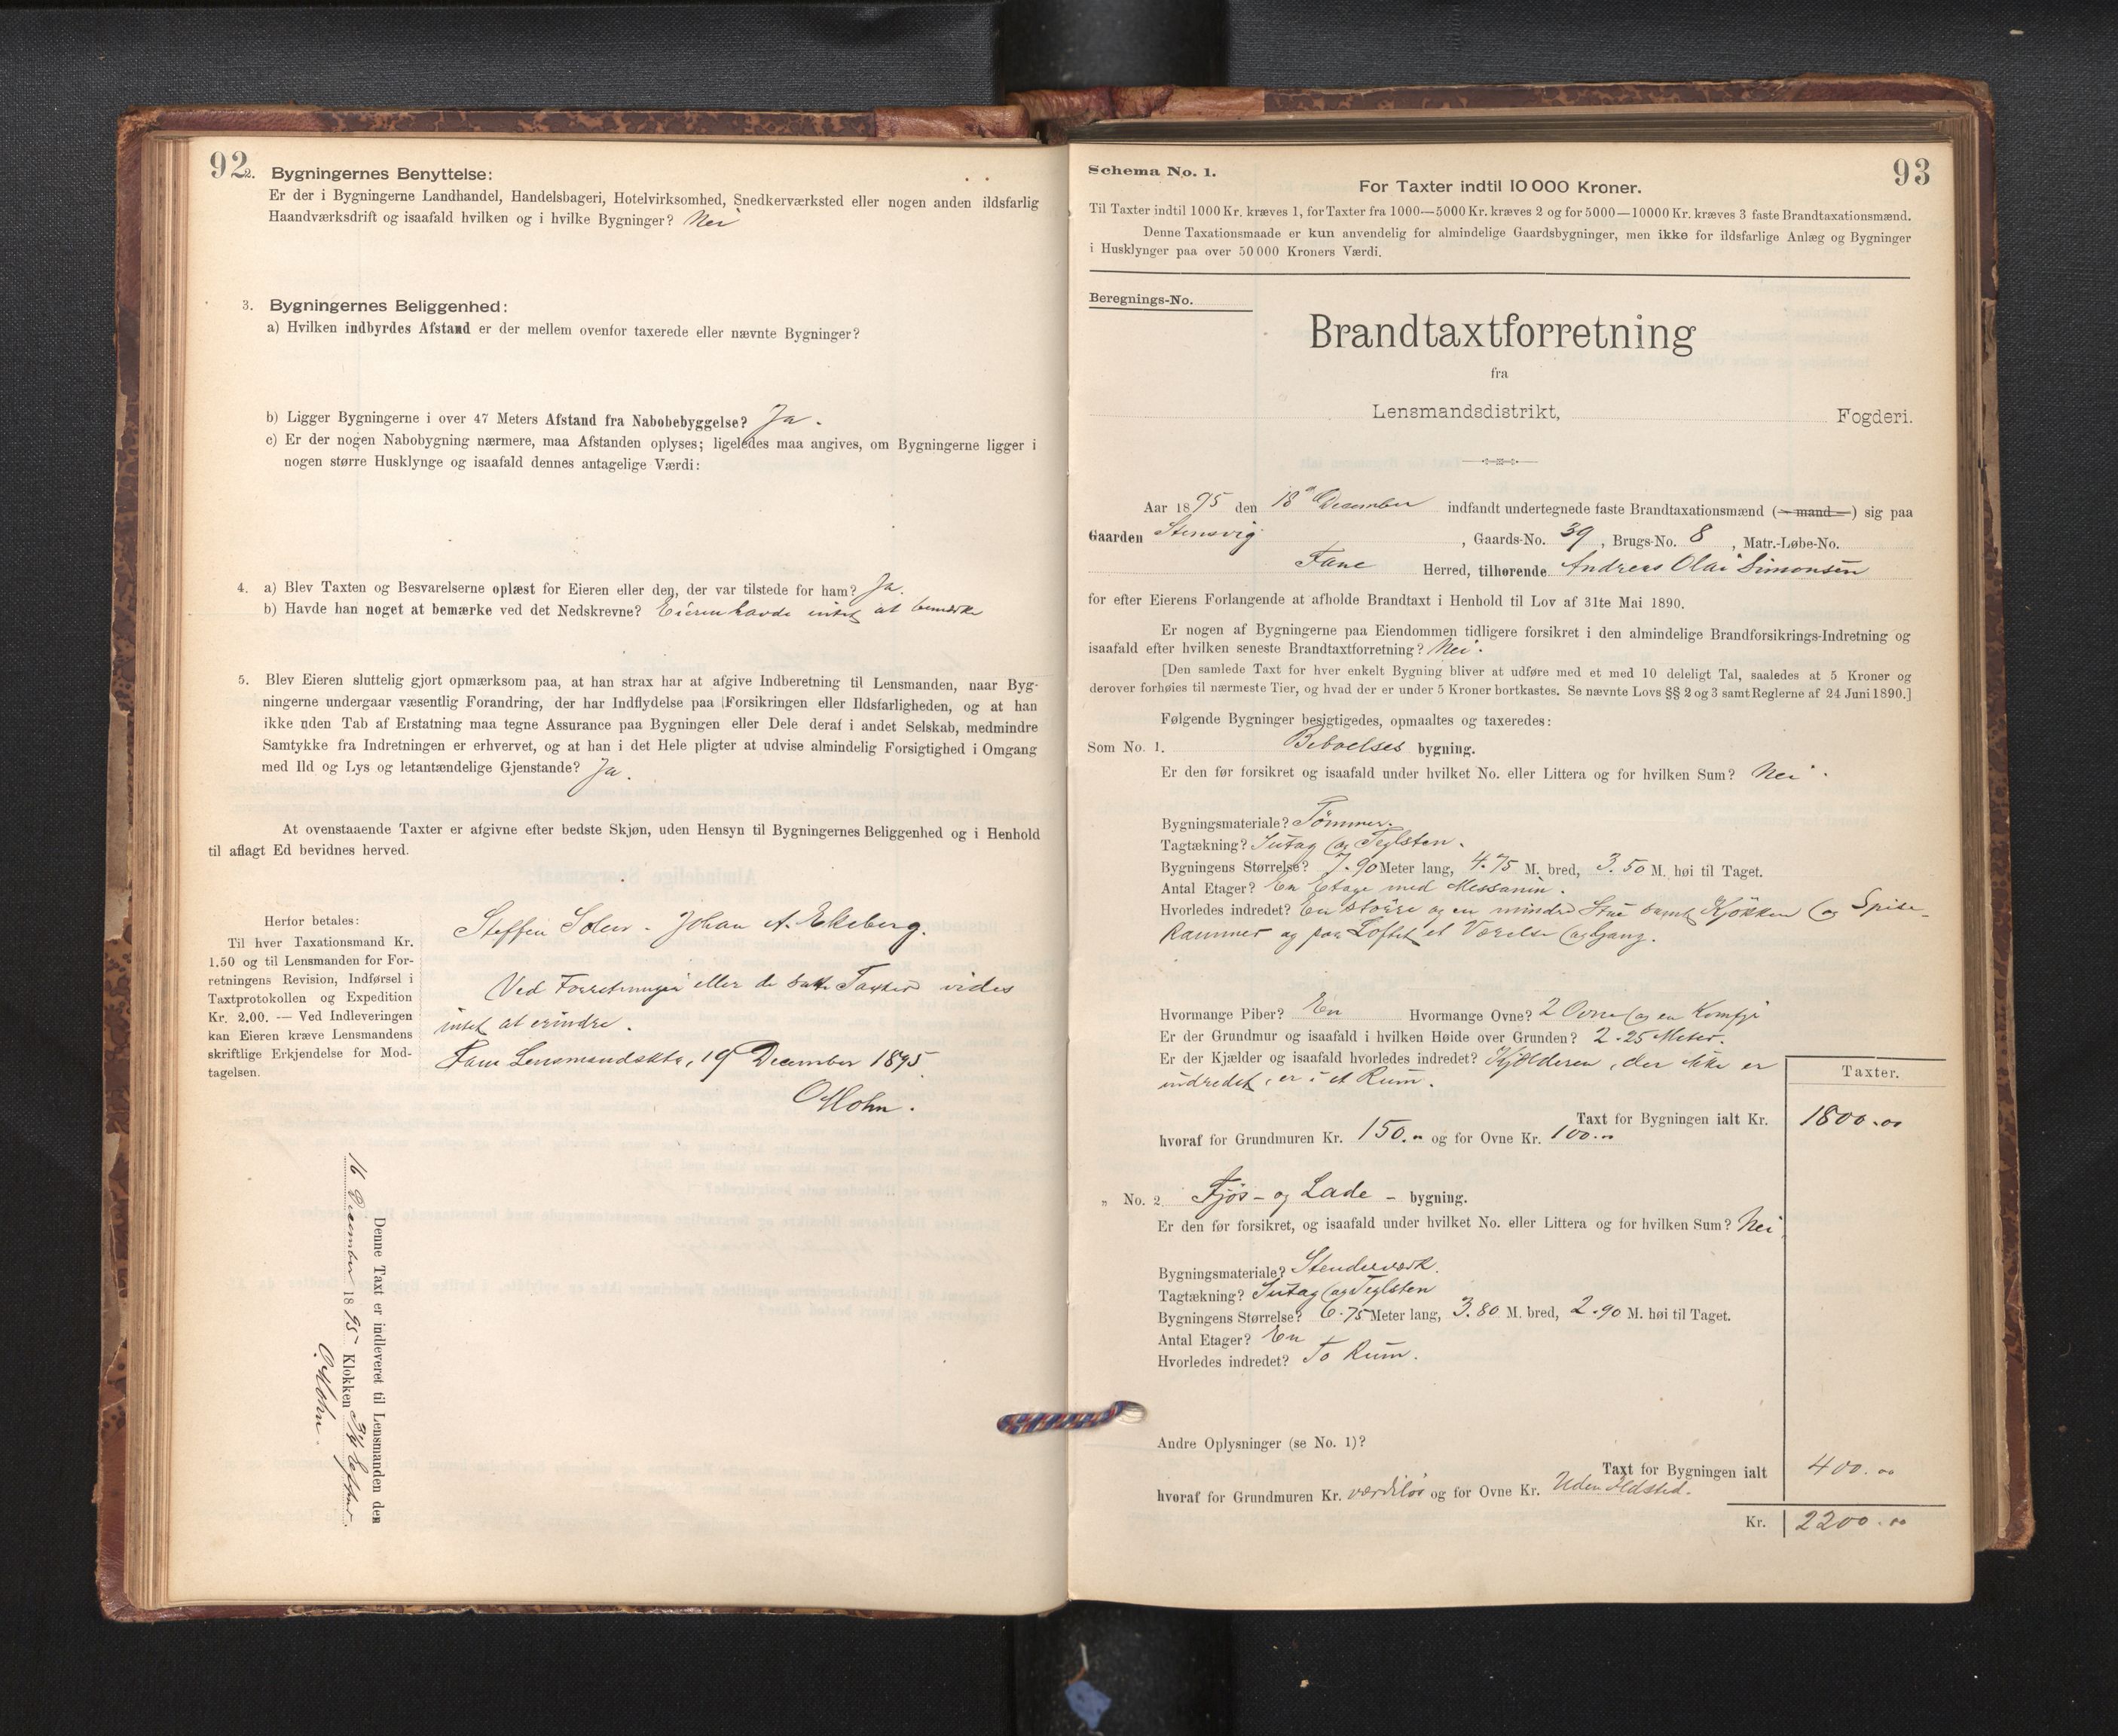 92
2. Bygningernes Benyttelse:
Er der i Bygningerne Landhandel, Handelsbageri, Hotelvirksomhed, Snedkerværksted eller nogen anden ildsfarlig
Haandværksdrift og isaafald hvilken og i hvilke Bygninger? Nei
3. Bygningernes Beliggenhed:
a) Hvilken indbyrdes Afstand er der mellem ovenfor taxerede eller nævnte Bygninger?
b) Ligger Bygningerne i over 47 Meters Afstand fra Nabobebyggelse? Ja.
c) Er der nogen Nabobygning nærmere, maa Afstanden oplyses; ligeledes maa angives, om Bygningerne ligger i
nogen større Husklynge og isaafald dennes antagelige Værdi:
4. a) Blev Taxten og Besvarelserne oplæst for Eieren eller den, der var tilstede for ham? Ja.
b) Havde han noget at bemærke ved det Nedskrevne? Eieren havde intet at bemærke
5. Blev Eieren sluttelig gjort opmærksom paa, at han strax har at afgive Indberetning til Lensmanden, naar Byg-
ningerne undergaar væsentlig Forandring, der har Indflydelse paa Forsikringen eller Ildsfarligheden, og at han
ikke uden Tab af Erstatning maa tegne Assurance paa Bygningen eller Dele deraf i andet Selskab, medmindre
Samtykke fra Indretningen er erhvervet, og at han i det Hele pligter at udvise almindelig Forsigtighed i Omgang
med Ild og Lys og letantændelige Gjenstande? Ja.
At ovenstaaende Taxter er afgivne efter bedste Skjøn, uden Hensyn til Bygningernes Beliggenhed og i Henhold
til aflagt Ed bevidnes herved.
Herfor betales:
Til hver Taxationsmand Kr.
1.50 og til Lensmanden for For-
retningens Revision, Indførsel i
Taxtprotokollen og Expedition
Kr. 2.00. — Ved Indleveringen
kan Eieren kræve Lensmandens
skriftlige Erkjendelse for Mod-
tagelsen.
Steffen Johan A. Ekeberg.
Ved Forretningen eller de satte Taxter vides
intet at erindre.
Fane Lensmandskt., 19 December 1895
O Mohn.
Denne Taxt er indleveret til Lensmanden den
16 December 1895 Klokken
O. Mohn.
93
Schema No. 1.
For Taxter indtil 10 000 Kroner.
Til Taxter indtil 1000 Kr. kræves 1, for Taxter fra 1000—5000 Kr. kræves 2 og for 5000—10000 Kr. kræves 3 faste Brandtaxationsmænd.
Denne Taxationsmaade er kun anvendelig for almindelige Gaardsbygninger, men ikke for ildsfarlige Anlæg og Bygninger
i Husklynger paa over 50 000 Kroners Værdi.
Beregnings-No.
Brandtaxtforretning
fra
Lensmandsdistrikt, Fogderi.
Aar 1895 den 18 December indfandt undertegnede faste Brandtaxationsmænd (mand) sig paa
Gaarden Stensvig, Gaards-No. 39, Brugs-No. 8, Matr.-Løbe-No.
Fane Herred, tilhørende Andreas Olai Simonsen
for efter Eierens Forlangende at afholde Brandtaxt i Henhold til Lov af 31te Mai 1890.
Er nogen af Bygningerne paa Eiendommen tidligere forsikret i den almindelige Brandforsikrings-Indretning og
isaafald efter hvilken seneste Brandtaxtforretning? Nei.
[Den samlede Taxt for hver enkelt Bygning bliver at udføre med et med 10 deleligt Tal, saaledes at 5 Kroner og
derover forhøies til nærmeste Tier, og hvad der er under 5 Kroner bortkastes. Se nævnte Lovs §§ 2 og 3 samt Reglerne af 24 Juni 1890.]
Følgende Bygninger besigtigedes, opmaaltes og taxeredes:
Som No. 1. Beboelses bygning.
Er den før forsikret og isaafald under hvilket No. eller Littera og for hvilken Sum? Nei.
Bygningsmateriale? Tömmer.
Tagtækning? Sutag og Teglsten.
Bygningens Størrelse? 7.90 Meter lang, 4.75 M. bred, 3.50 M. høi til Taget.
Antal Etager? En Etage med Messanin.
Hvorledes indredet? En större og en mindre Stue samt Kjökken og Spise-
kammer og paa Loftet et Værelse og Gang.
Hvormange Piber? En Hvormange Ovne? 2 Ovne og en Komfyr
Er der Grundmur og isaafald i hvilken Høide over Grunden? 2.25 Meter.
Er der Kjælder og isaafald hvorledes indredet? Kjelderen, der ikke er
indredet, er i et Rum.
Taxter.
Taxt for Bygningen ialt Kr. 1800.00
hvoraf for Grundmuren Kr. 150.„ og for Ovne Kr. 100.„
„ No. 2. Fjös- og Lade- bygning.
Er den før forsikret, og isaafald under hvilket No. eller Littera og for hvilken Sum? Nei
Bygningsmateriale? Stenderværk.
Tagtækning? Sutag og Teglsten
Bygningens Størrelse? 6.75 Meter lang, 3.80 M. bred, 2.90 M. høi til Taget.
Antal Etager? En
Hvorledes indredet? To Rum.
Andre Oplysninger (se No. 1)?
Taxt for Bygningen ialt 400.00
hvoraf for Grundmuren Kr. værdilös og for Ovne Kr. Uden Ildsted.
Kr. 2200.00